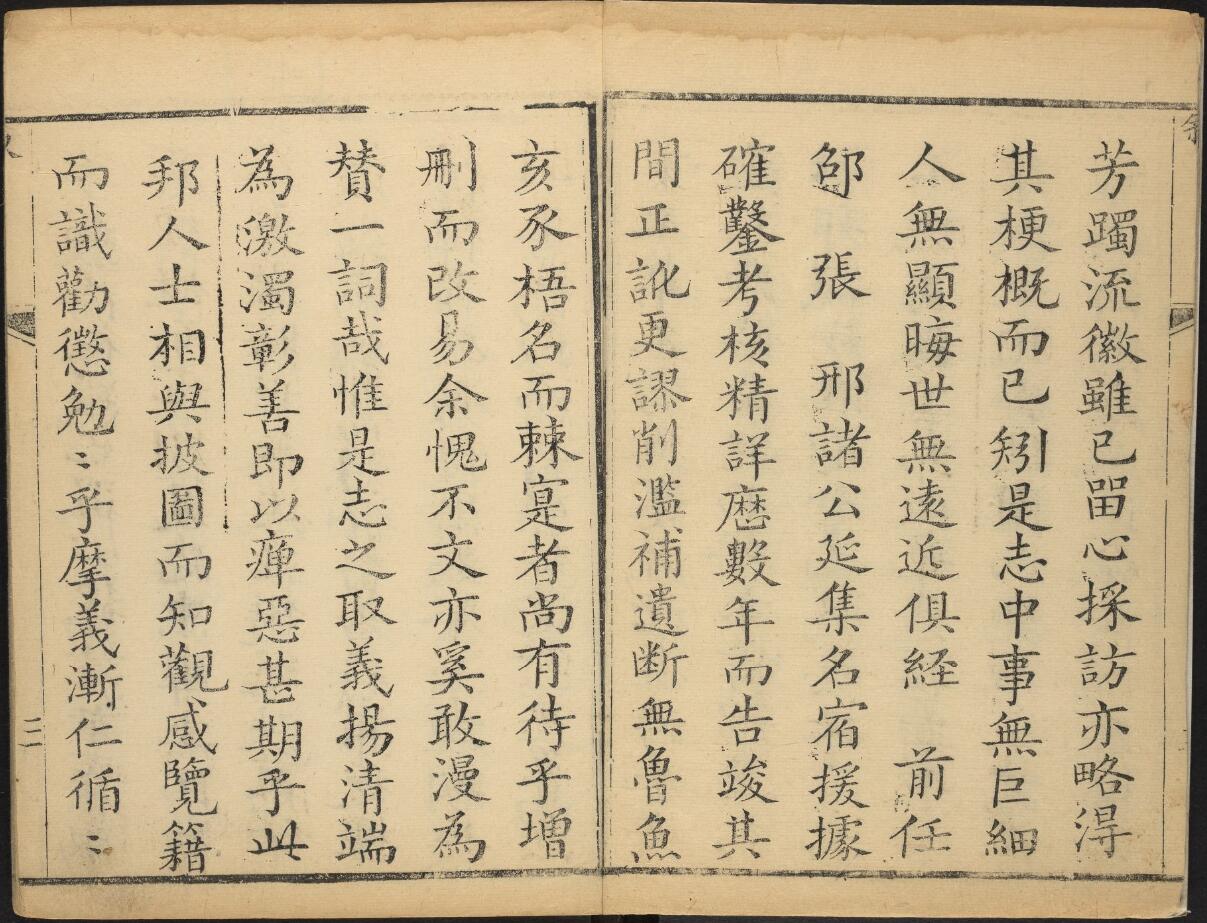 芳躅流徽雖已畱心採訪亦略得
其梗概而已矧是志中事無巨細
人無顯晦世無遠近俱経　前任
邵　張　邢諸公延集名宿援據
確鑿考核精詳歴數年而告竣其
間正訛更謬削濫補遺斷無魯魚
亥豕梧名而棘寔者尚有待乎增
刪而改易余愧不文亦奚敢漫為
賛一詞哉惟是志之取義揚清端
為激濁彰善即以癉惡甚期乎此
邦人士相與披圖而知觀感覽籍
而識勸懲勉〻乎摩義漸仁循〻
二